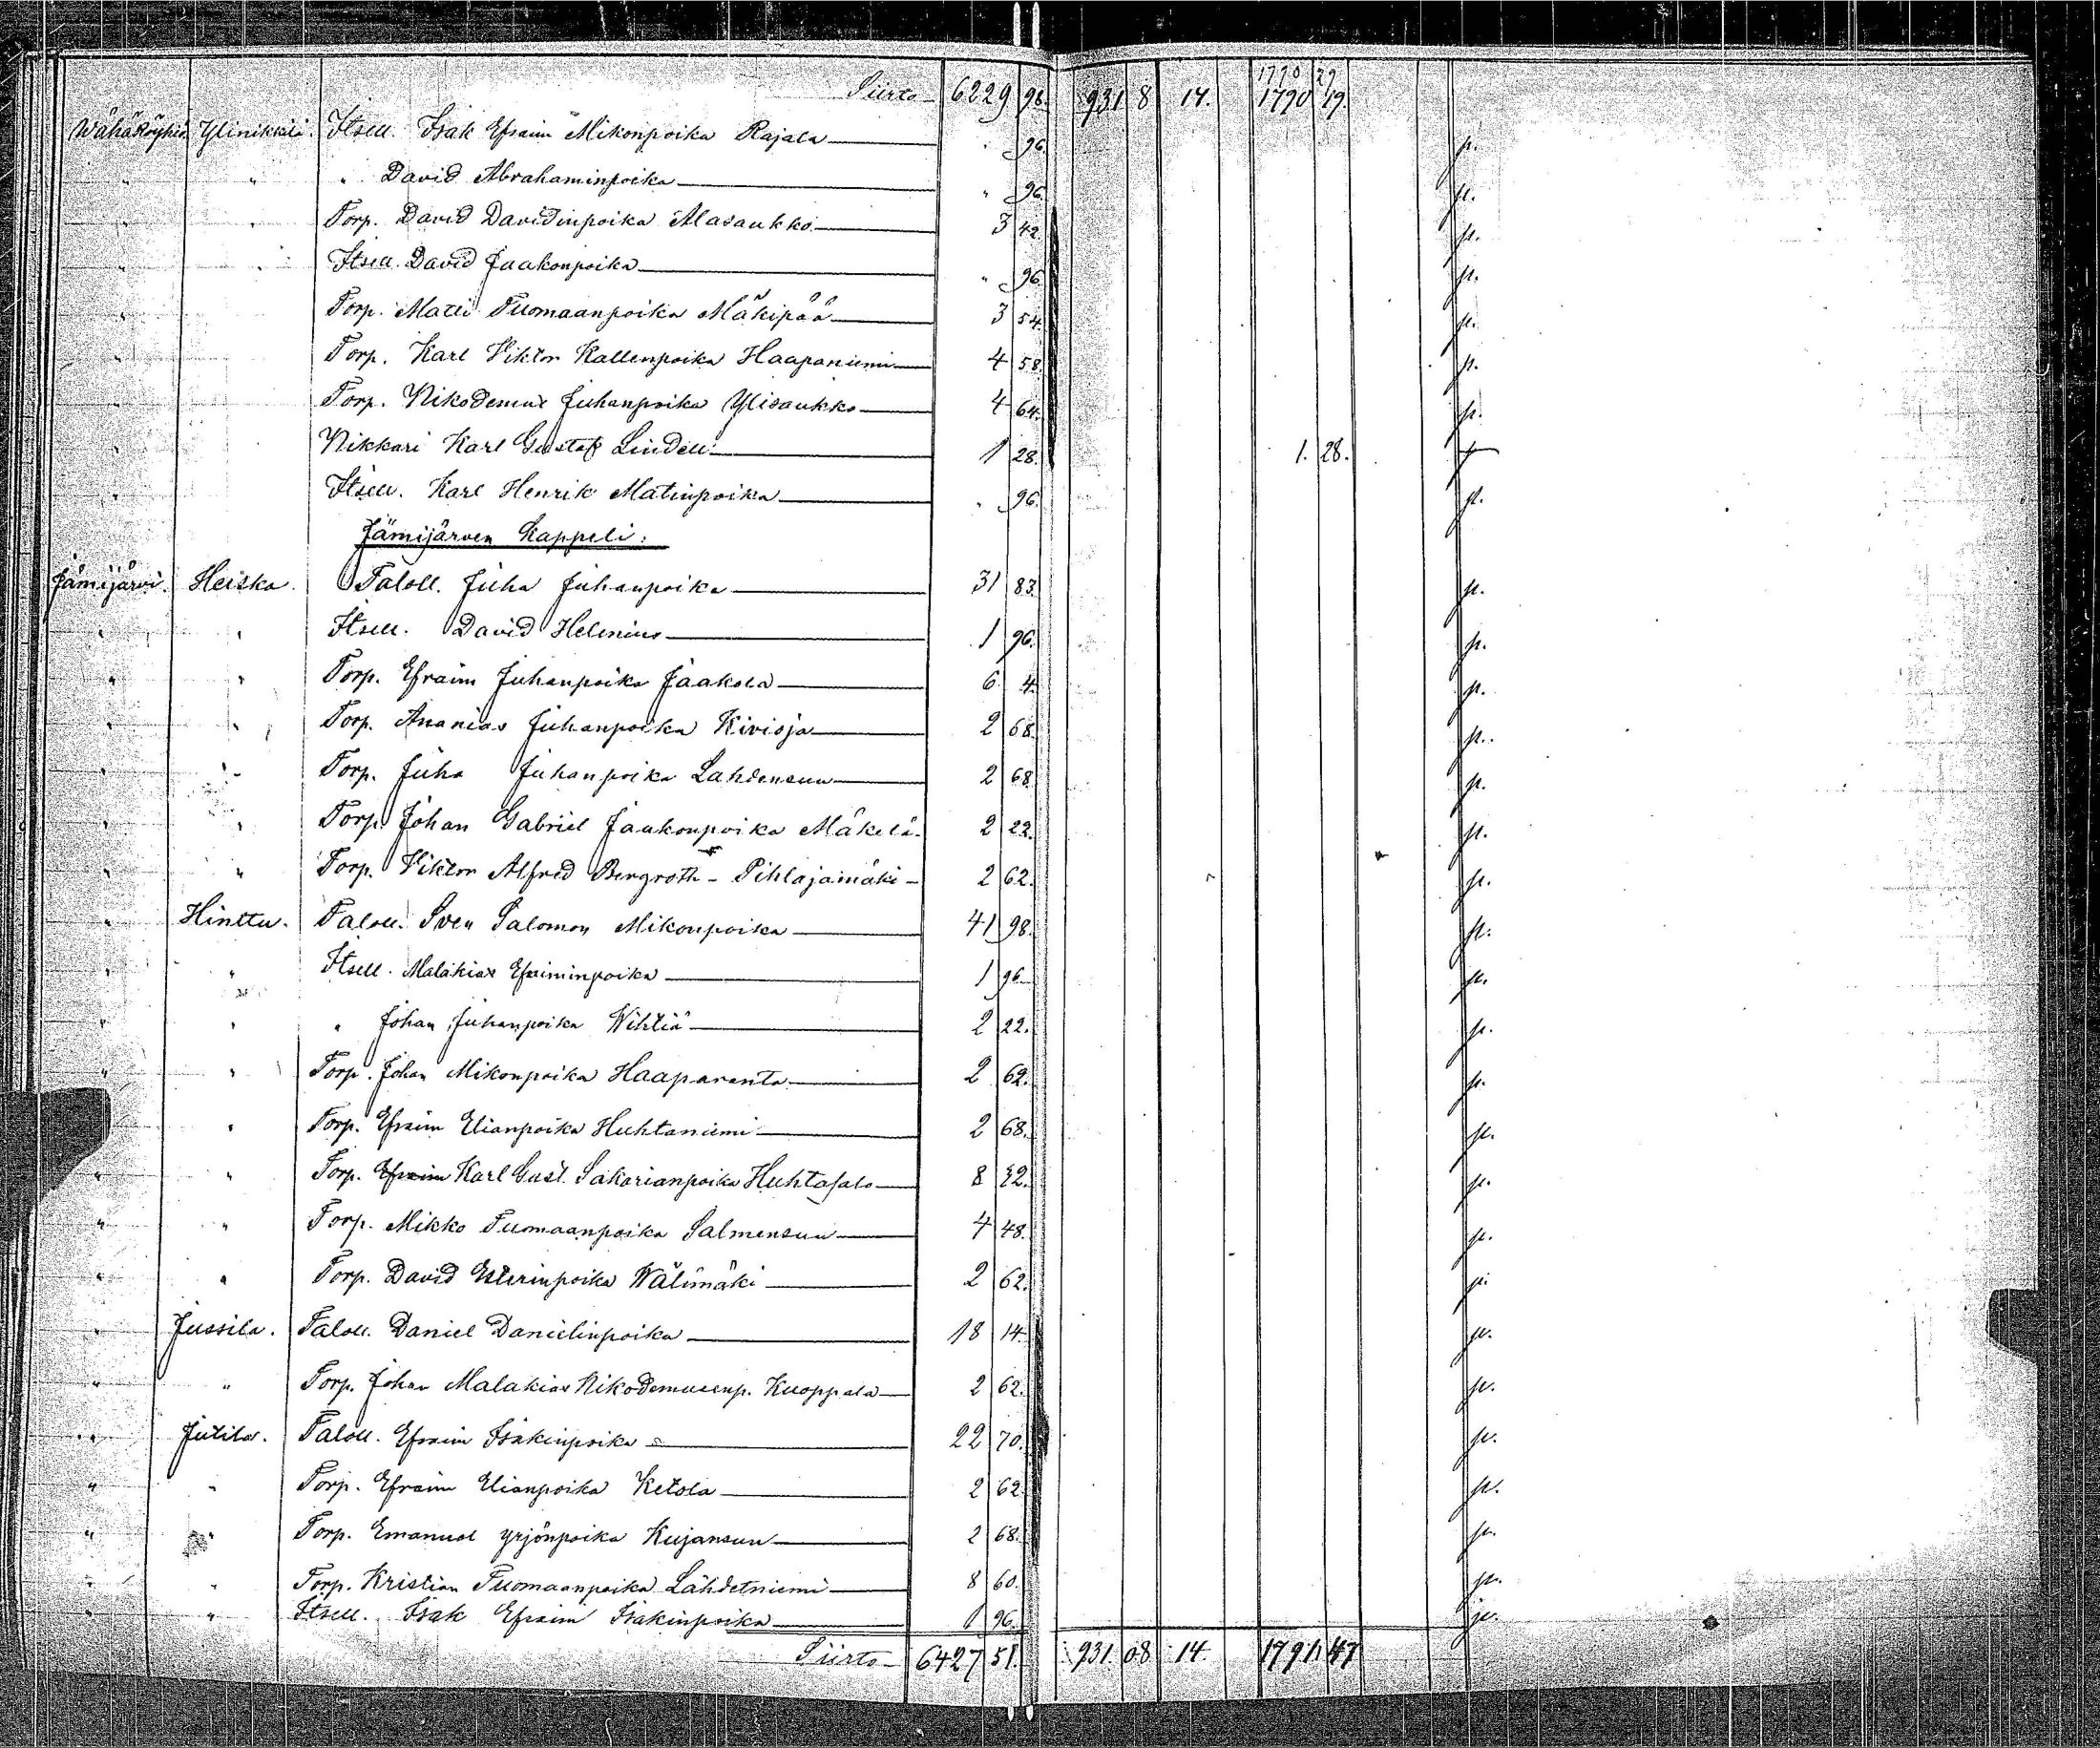 1790 29
Siirto 6229 98. 931 8 14. 1790 19.
Wähäröyhiö Ylinikkilä. Itsell. Isak Efraim Mikonpoika Rajala " 96. p.
" " " David Abrahaminpoika " 96. p.
" " Torp. David Davidinpoika Alasaukko 3 42. p.
" " Itsell. David Jaakonpoika " 96. p.
" Torp. Matti Tuomaanpoika Mäkipää 3 54. p.
" Torp. Karl Viktor Kallenpoika Haapaniemi 4 58. p.
" Torp. Nikodemus Juhanpoika Ylisaukko 4 64. p.
" Nikkari Karl Gustaf Lindell 1 28. 1. 28.
" Itsell. Karl Henrik Matinpoika " 96. p.
Jämijärven Kappeli:
Jämijärvi. Heiska. Taloll. Juha Juhanpoika 31 83. p.
" " Itsell. David Helenius 1 96. p.
" " Torp. Efraim Juhanpoika Jaakola 6 4. p.
" " Torp. Ananias Juhanpoika Kivioja 2 68. p.
" " Torp. Juha Juhanpoika Lahdensuu 2 68. p.
" " Torp. Johan Gabriel Jaakonpoika Mäkelä 2 22. p.
" " Torp. Viktor Alfred Bergroth - Pihlajamäki - 2 62. p.
" Hinttu. Taloll. Sven Salomon Mikonpoika 41 98. p.
" " Itsell. Malakias Efraiminpoika 1 96 p.
" " " Johan Juhanpoika Wihtiä 2 22. p.
" " Torp. Johan Mikonpoika Haaparanta 2 62. p.
" Torp. Efraim Elianpoika Huhtaniemi 2 68. p.
" " Torp. Efraim Karl Gust. Sakarianpoika Huhtasalo 8 22. p.
" " Torp. Mikko Tuomaanpoika Salmensuu 4 48. p.
" " Torp. David Esterinpoika Wälimäki 2 62. p.
" Jussila. Taloll. Daniel Danielinpoika 18 14. p.
" " Torp. Johan Malakias Nikodemusenp. Kuoppala 2 62. p.
" Jutila. Taloll. Efraim Isakinpoika 22 70. p.
" " Torp. Efraim Elianpoika Ketola 2 62 p.
" " Torp. Emanuel Yrjönpoika Kujansuu 2 68. p.
" " Torp. Kristian Tuomaanpoika Lähdetniemi 8 60. p.
" " Itsell. Isak Efraim Isakinpoika 1 96. p.
Siirto 6427 51. 931. 08 14. 1791 47